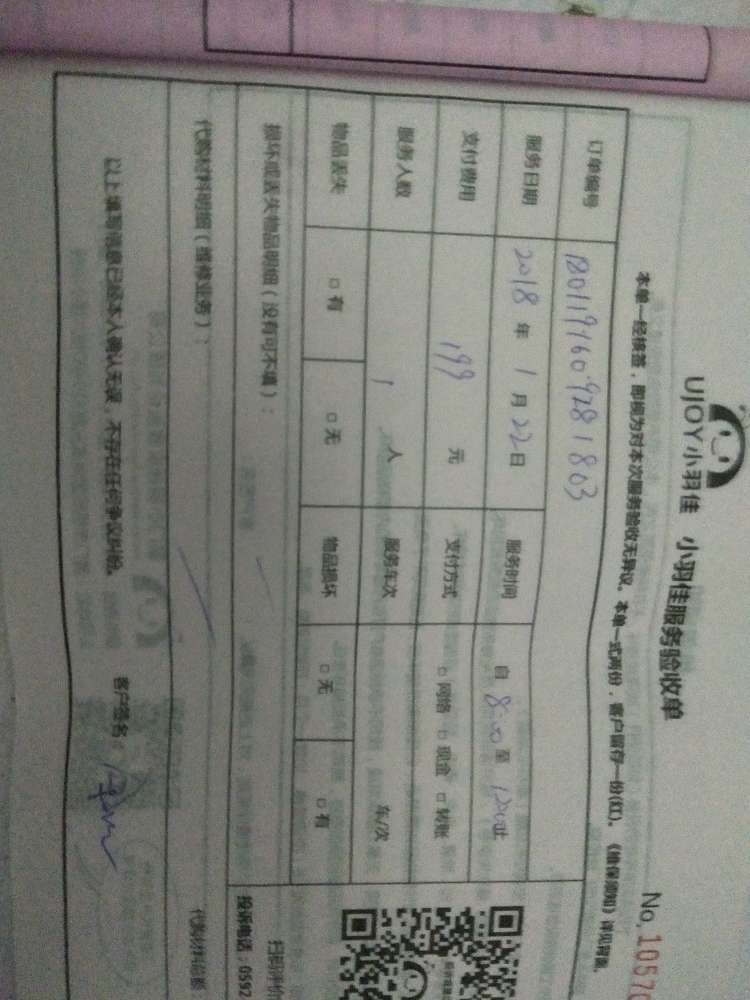 UJOY小羽佳 小羽佳服务验收单
No. 10570
本单一经核签，即视为对本次服务验收无异议。本单一式两份，客户留存一份(红)。《维保须知》详见背面。
订单编号 1801191609281803
服务日期 2018 年 1 月 22 日 服务时间 自 8:00 至
支付费用 199 元 支付方式 □ 网络 □ 现金 □ 转账
服务人数 1 人 服务车次 车/次
物品丢失 □ 有 □ 无 物品损坏 □ 无 □ 有
损坏或丢失物品明细（没有可不填）：
扫码评价
投诉电话：0592
代购材料明细（维修业务）：
代购材料总额
以上填写信息已经本人确认无误，不存在任何争议纠纷。 客户签名：